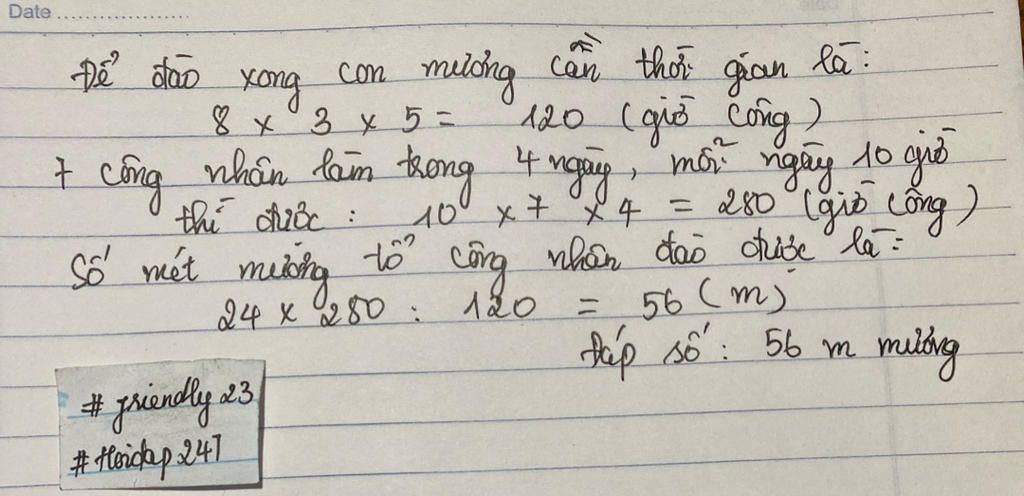 Date
Để đào xong con mương cần thời gian là:
8 x 3 x 5 = 120 (giờ công)
7 công nhân làm trong 4 ngày, mỗi ngày 10 giờ
thì được: 10 x 7 x 4 = 280 (giờ công)
Số mét mương tổ công nhân đào được là:
24 x 280 : 120 = 56 (m)
Đáp số: 56 m mương
# friendly 23
# Hoidap 247